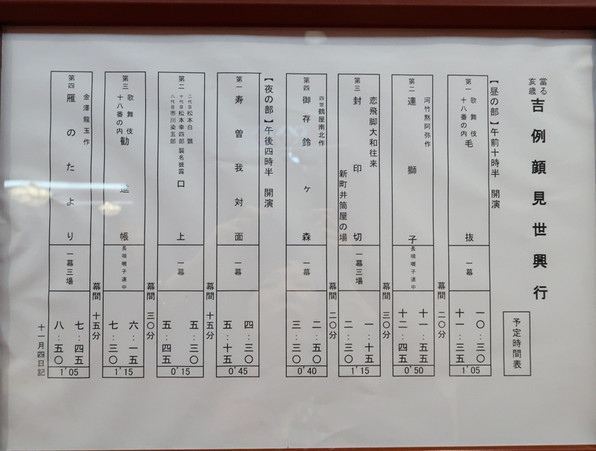 當る
亥歳
吉例顔見世興行
予定時間表
【昼の部】午前十時半 開演
第一 歌舞伎十八番の内 毛抜 一幕
一〇:三〇
十一:三五
1'05
幕間 二〇分
河竹黙阿弥作
第二 連獅子 長唄囃子連中
十一:五五
十二:四五
0'50
幕間 三〇分
恋飛脚大和往来
第三 封印切
新町井筒屋の場
一幕三場
一:十五
二:三〇
1'15
幕間 二〇分
四世鶴屋南北作
第四 御存鈴ヶ森 一幕
二:五〇
三:三〇
0'40
【夜の部】午後四時半 開演
第一 寿曽我対面 一幕
四:三〇
五:十五
0'45
幕間 十五分
二代目松本白鸚
十代目松本幸四郎 襲名披露
八代目市川染五郎
第二 口上 一幕
五:三〇
五:四五
0'15
幕間 三〇分
第三 歌舞伎十八番の内 勧進帳 長唄囃子連中
六:一五
七:三〇
1'15
幕間 十五分
金澤龍玉作
第四 雁のたより 一幕三場
七:四五
八:五〇
1'05
十一月四日記